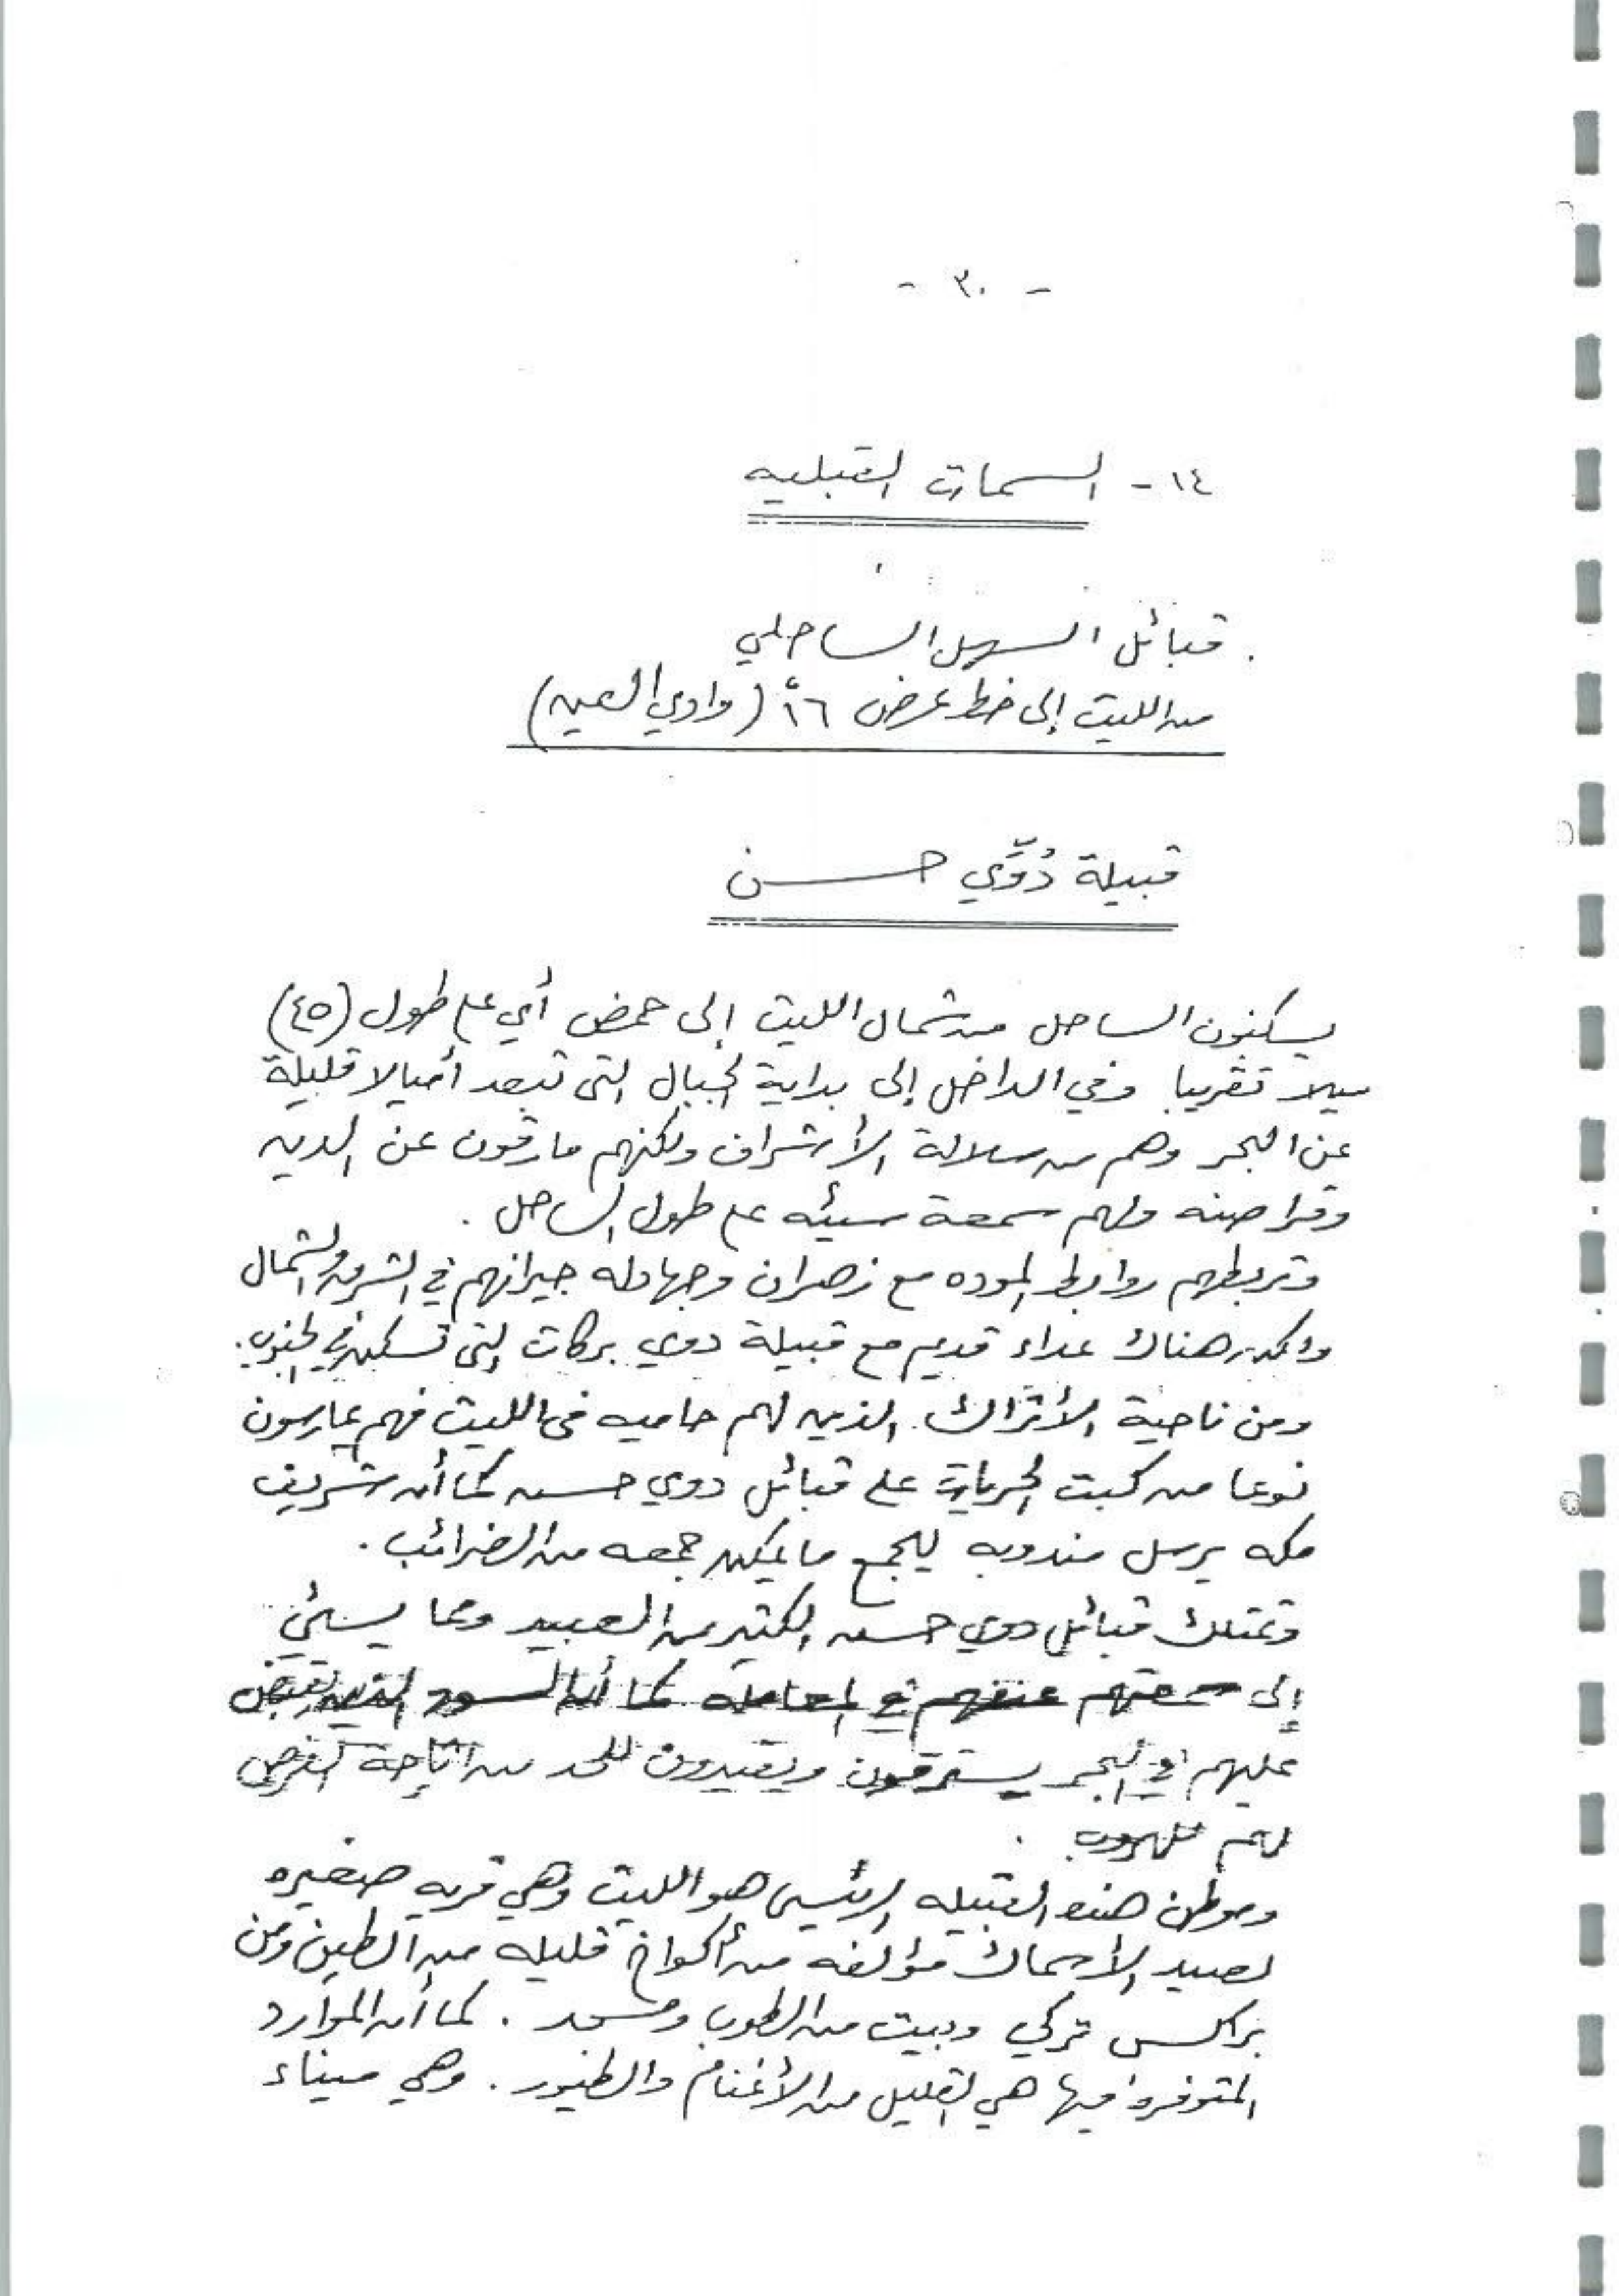 - ٣٠ -
١٤ - السمات القبليه
قبائل السهل الساحلي
من الليث إلى خط عرض ١٦° (وادي العين)
قبيلة ذُوَّي حسن
يسكنون الساحل من شمال الليث إلى حمض أي على طول (٤٥)
ميلا تقريبا وفي الداخل إلى بداية الجبال التى تبعد أميالا قليلة
عن البحر وهم من سلالة الأشراف ولكنهم مارقون عن الدين
وقراصنه ولهم سمعة سيئه على طول الساحل .
وتربطهم روابط الموده مع زهران وجهادله جيرانهم في الشرق والشمال
ولكن هناك عداء قديم مع قبيلة ذوي بركات التى تسكن في الجنوب .
ومن ناحية الأتراك الذين لهم حاميه فى الليث فهم يمارسون
نوعا من كبت الحريات على قبائل ذوي حسن كما أن شريف
مكه يرسل مندوبه ليجمع ما يمكن جمعه من الضرائب .
وتمتلك قبائل ذوي حسن الكثير من العبيد ومما يسئ
إلى سمعتهم عنفهم في المعاملة كما أن السود الذين يقبض
عليهم في البحر يسترقون ويقيدون للحد من اتاحة الفرص
لهم للهروب .
وموطن هذه القبيله الرئيسى هو الليث وهي قريه صغيره
لصيد الأسماك مؤلفه من أكواخ قليله من الطين ومن
براكس تركي وبيت من الطوب ومسجد . كما أن الموارد
المتوفره فيها هي القليل من الأغنام والطيور . وهي ميناء